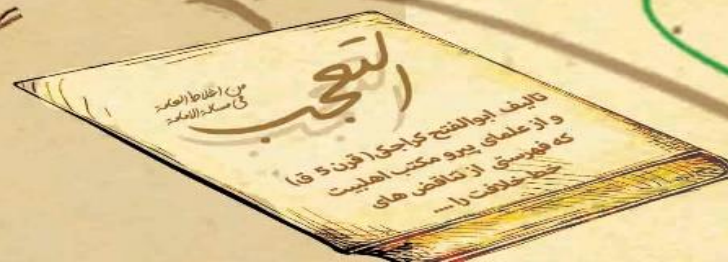 التعجب
من اغلاط العامة
في مسألة الامامة
تالیف ابوالفتح کراجکی (قرن 5 ق)
و از علمای پیرو مکتب اهلبیت
که فهرستی از تناقض های
خط خلافت را....